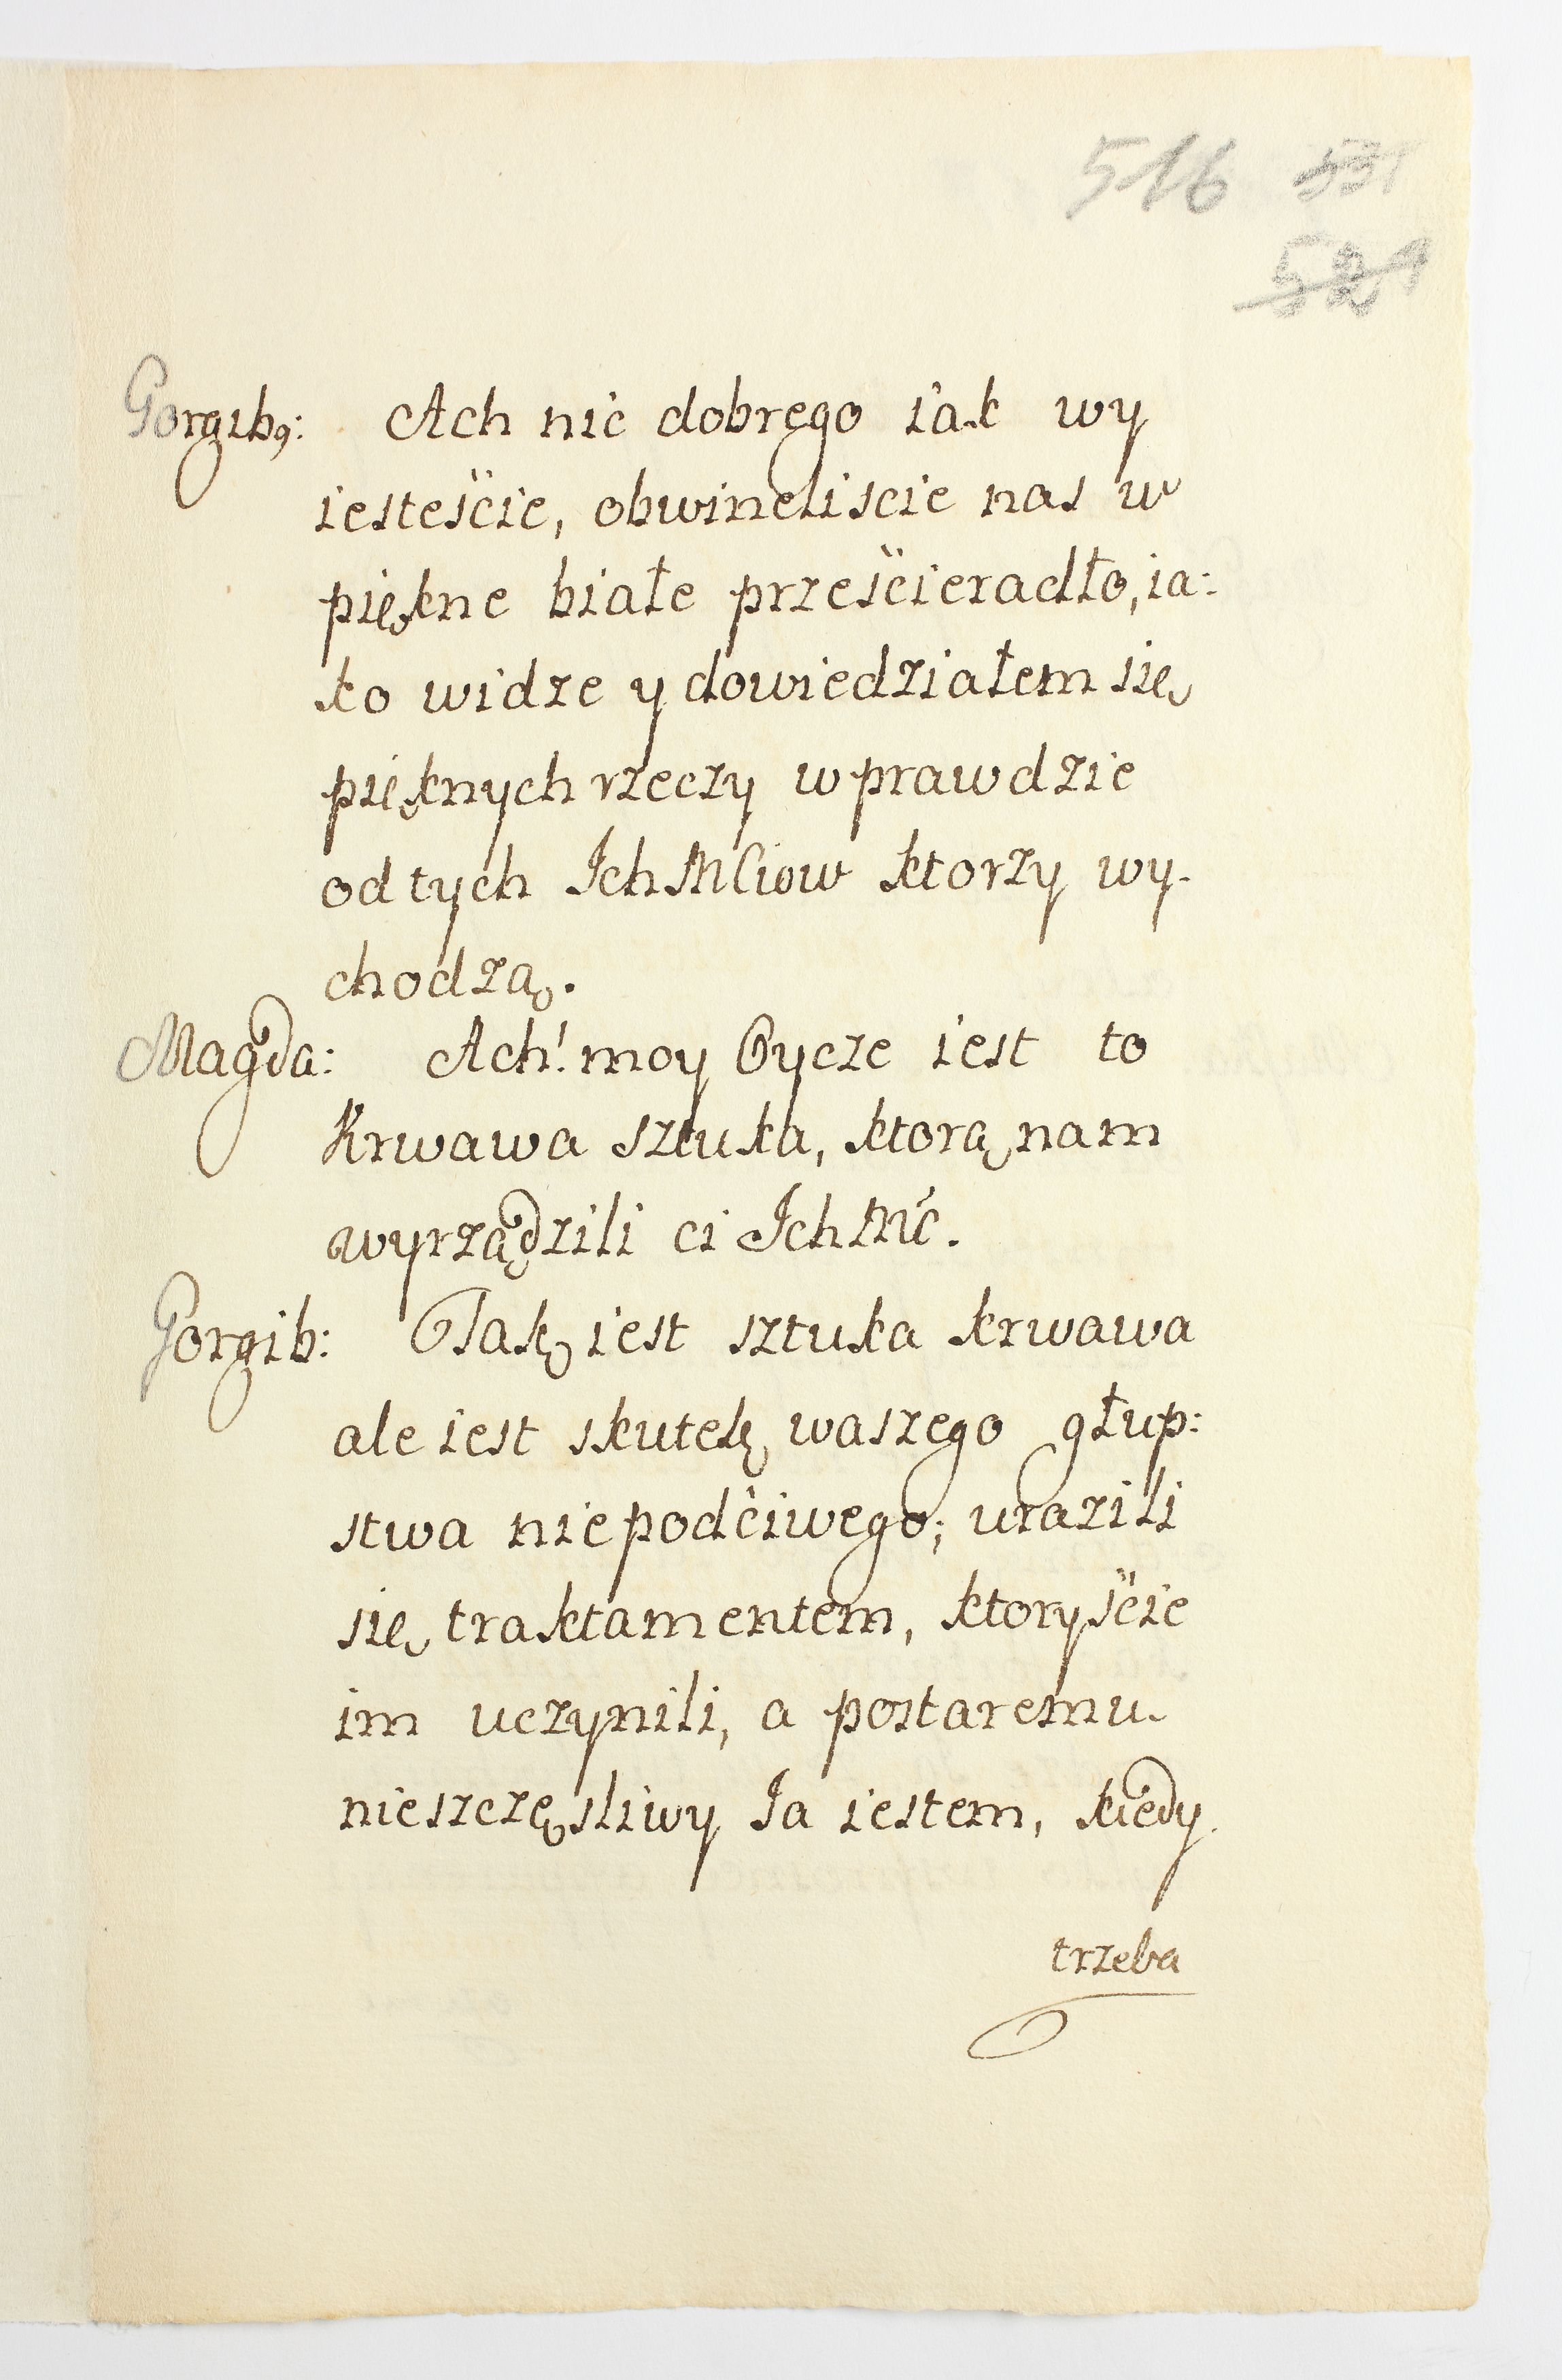 516 531
521
Gorgib9: Ach nic dobrego iak wy
iesteście, obwineliscie nas w
piękne białe prześcieradło, ia:
ko widze y dowiedziałem się
pięknych rzeczy wprawdzie
od tych IchMCiow ktorzy wy-
chodzą.
Magda: Ach! moy Oycze iest to
Krwawa sztuka, ktorą nam
wyrządzili ci IchMć.
Gorgib: Tak iest sztuka krwawa
ale iest skutek waszego głup:
stwa niepodćiwego; urazili
się traktamentem, ktoryście
im uczynili, a postaremu
nieszczęsliwy Ia iestem, kiedy
trzeba